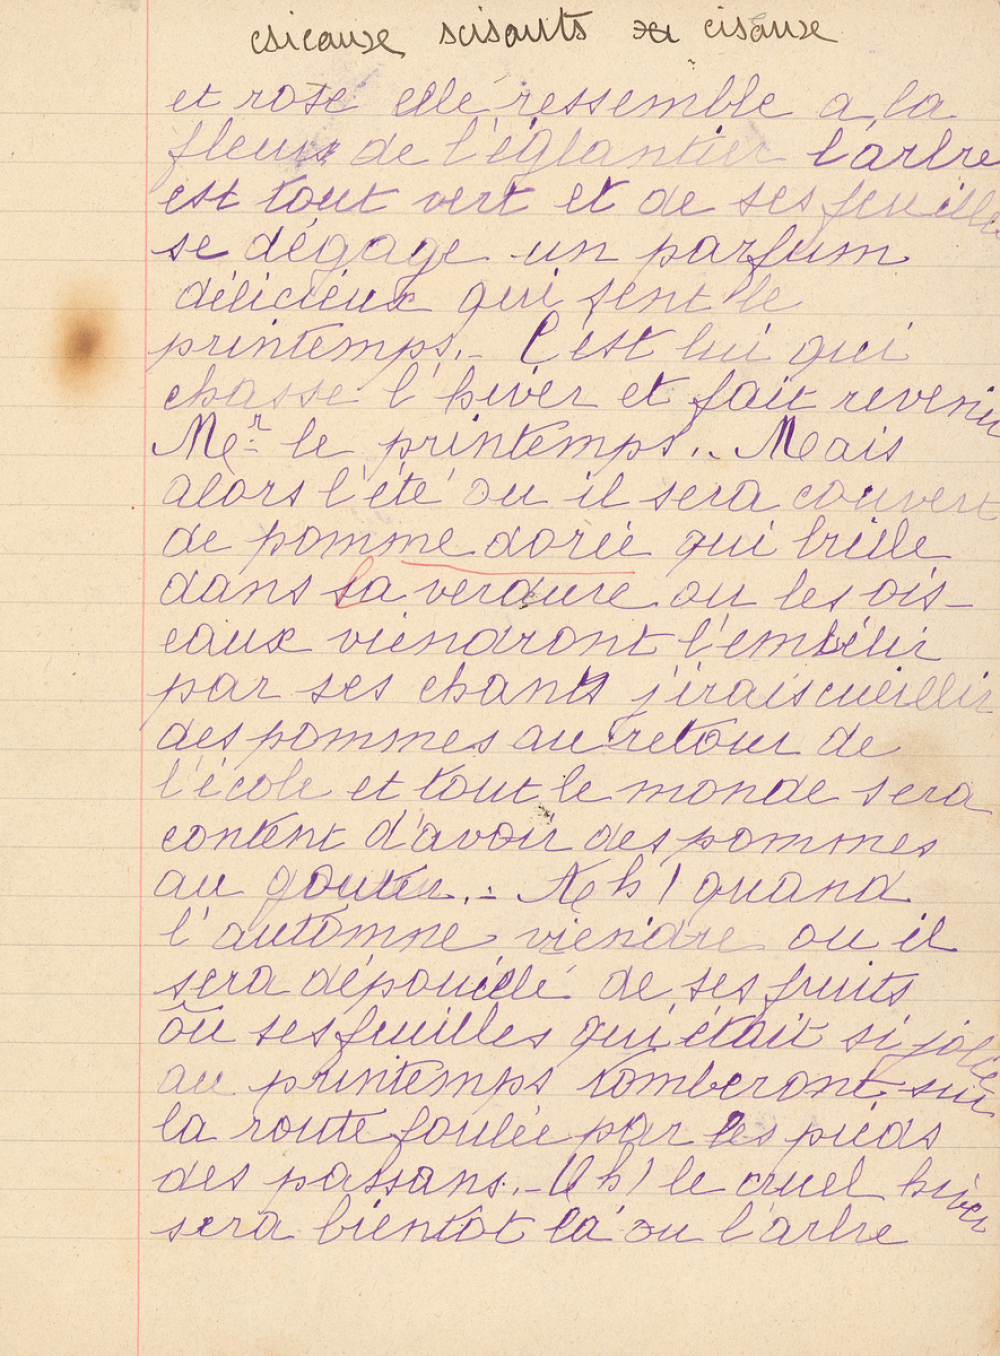 csicause scisauts cisause
et rose elle ressemble a la
fleur de l'églantier l'arbre
est tout vert et de ses feuilles
se dégage un parfum
délicieux qui sent le
printemps.- C'est lui qui
chasse l'hiver et fait revenir
Mr le printemps.. Mais
alors l'été ou il sera couvert
de pomme dorée qui brille
dans sa verdure ou les ois-
eaux viendront l'embélir
par ses chants j'irais cueillir
des pommes au retour de
l'école et tout le monde sera
content d'avoir des pommes
au gouter.- Ah! quand
l'automne viendre ou il
sera dépouillé de ses fruits
ou ses feuilles qui était si jolie
au printemps tomberont sur
la route foulée par les pieds
des passans.- Oh! le cruel hiver
sera bientôt là ou l'arbre